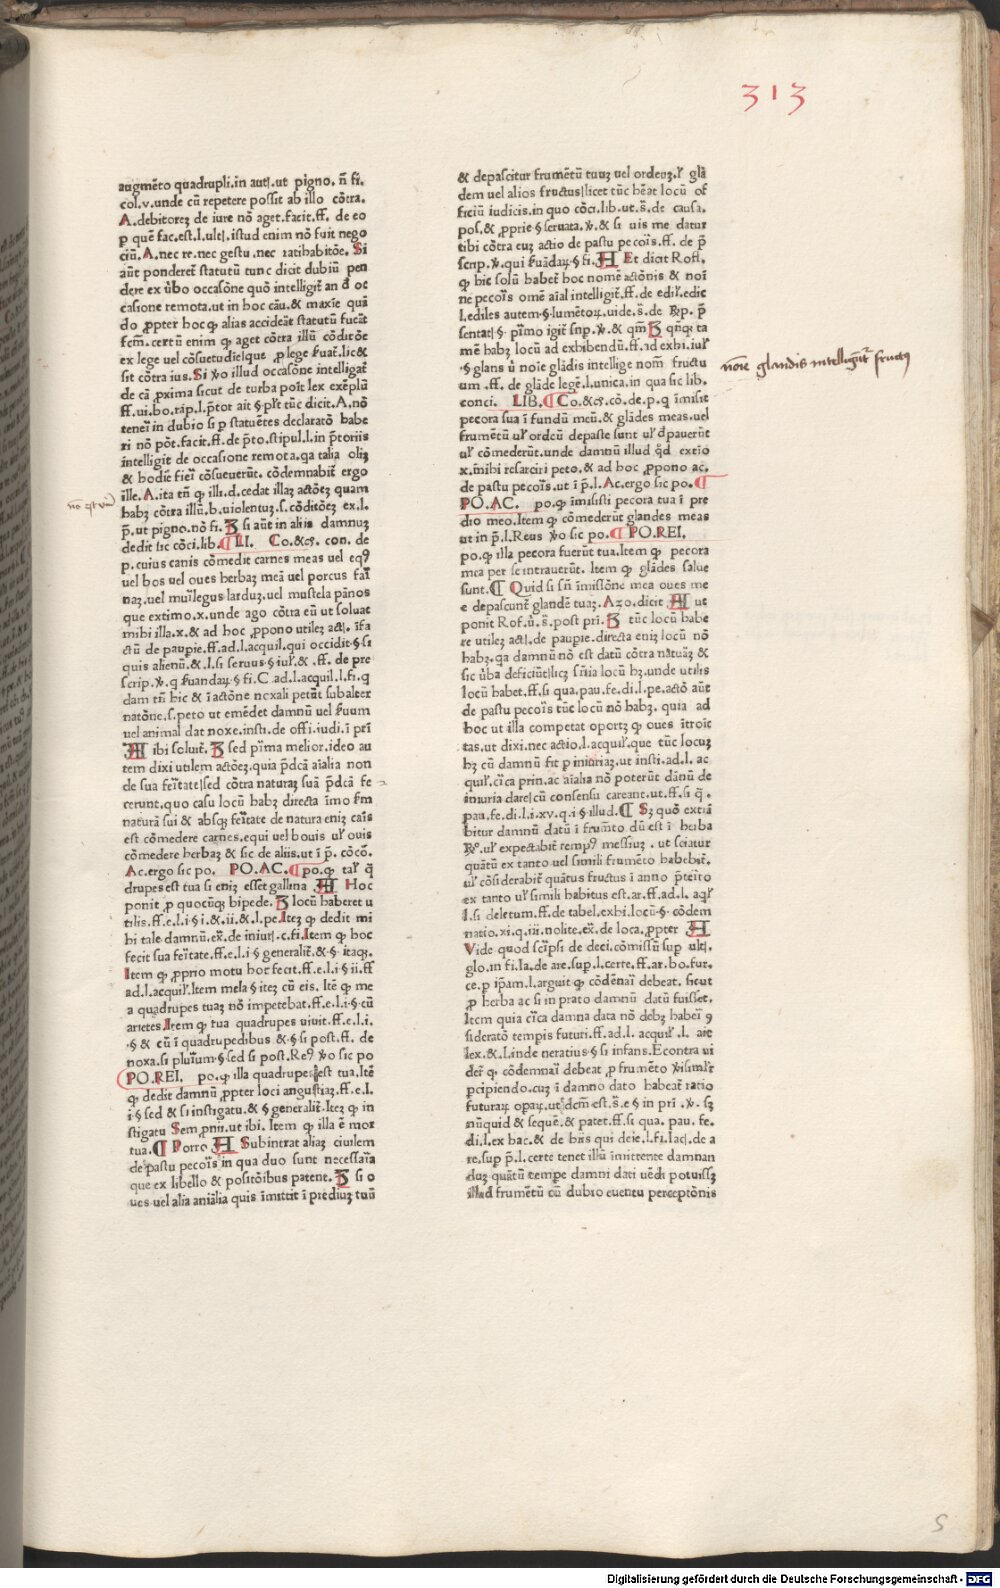 313
augmēto quadrupli.in autļ.ut pigno. n̄ fi.
col.v.unde cū repetere possit ab illo cōtra.
A.debitorez de iure nō aget.facit.ff. de eo
p quē fac.est.l.ultļ.istud enim nō fuit nego
ciū.A.nec re.nec gestu.nec ratihabitōe. Si
aūt ponderet statutū tunc dicit dubiū pen
dere ex ūbo occasōne quō intelligit an d oc
casione remota.ut in hoc cāu.& maxīe quā
do ꝓpter hoc ꝙ alias accideāt statutū fueāt
fcm̄.certū enim ꝙ aget cōtra illū cōditōe
ex lege uel cōsuetudie|que ꝓ lege huat.lic&
sit cōtra ius.Si ꝟo illud occasōne intelligat
de cā ꝓxima sicut de turba poīt lex exēplū
ff.ui.bo.rap.l.ptor ait § plr tūc dicit.A.nō
teneī in dubio si p statuētes declaratō habe
ri nō pōt.facit.ff.de p̄to.stipul.l.in p̄toriis
intelligit de occasione remota.qa talia oliz
& hodie fieī cōsueuerūt. cōdemnabit ergo
ille.A.ita tn̄ ꝙ illi.d.cedat illaz actōez quam
babz cōtra illū.b.uiolentuz.s.cōditōez ex.l.
p̄.ut pigno.nō fi. si aūt in aliis damnuz
dedit sic cōci.lib.¶ LI. Co.&cs. con. de
p. cuius canis cōmedit carnes meas uel eq9
uel bos uel oues herbaz meā uel porcus faī
naz.uel muīlegus larduz.uel mustela pānos
que extimo.x.unde ago cōtra eū ut soluat
mihi illa.x.& ad hoc ꝓpono utilez actļ. īfa
ctū de paupie.ff.ad.l.acquil.qui occidit § si
quis alienū.&.l.si seruus § iul.& .ff. de pre
scrip.ꝟ.q huandaꝝ § fi.C ad.l.acquil.l.fi.q
dam tn̄ hic & ī actōne noxali petūt subalter
natōne.s.peto ut emēdet damnū uel huum
uel animal dat noxe.insti.de offi.iudi.ī prī
ibi soluit. sed pīma melior.ideo au
tem dixi utilem actōez.quia p̄dcā aīalia non
de sua feītate|sed cōtra naturaz suā p̄dcā fe
cerunt.quo casu locū babz directa īmo fm
naturā sui & absqz feītate de natura eniz caīs
est cōmedere carnes.equi uel bouis ul ouis
cōmedere herbaz & sic de aliis.ut ī p. cōcō.
Ac.ergo sic po. PO.AC.¶ po.ꝙ tal q̄
drupes est tua si eniz esset gallina Hoc
ponit p quocūqz bipede. locū haberet u
tilis.ff.e.l.i § i.& ii.& l.pe.Itez ꝙ dedit mi
hi tale damnū.ex̄.de iniurļ.c.fi.Item ꝙ hoc
fecit sua feītate.ff.e.l.i § generalit̄.& §. itaqz.
Item ꝙ ꝓprio motu hoc fecit.ff.e.l.i § ii.ff
ad.l.acquil.Item mela § itez cū eis. Itē ꝙ me
a quadrupes tuaz nō impetebat.ff.e.l.i.§ cū
arietes.Irem ꝙ tua quadrupes uiuit.ff.e.l.i.
.§ & cū ī quadrupedibus & § si post.ff. de
noxa.si pluīum § sed si post.Re9 ꝟo sic po
PO.REI. po.ꝙ illa quadrupes est tua.Itē
ꝙ dedit damnū ꝓpter loci angustiaz.ff.e.l.
i § sed & si instigatu.& § generalit̄.Itez ꝙ in
stigatu Sempnii.ut ibi. Item ꝙ illa ē mor
tua.¶ Porro Subintrat aliaz ciuilem
de pastu pecoīs in qua duo sunt necessaīa
que ex libello & positōibus patent. si o
ues uel alia anialia quis īmittit ī prediuz tuū
& depascitur frumētū tuuz uel ordeuz.l glā
dem uel alios fructus|licet tūc beat locū of
ficiū iudicis.in quo cōci.lib.ut.s̄.de causa.
pos.& ꝓprie § seruata.ꝟ.& si uis me datur
tibi cōtra euz actio de pastu pecoīs.ff. de p̄
scrip.ꝟ.qui huādaꝝ § fi. Et dicit Rofl.
ꝙ hic solū habet hoc nomē actōnis & noī
ne pecoīs omē aīal intelligit.ff.de edil.edic
l.ediles autem § iumētoꝝ.uide.s̄.de Rep. p̄
sentatļ § pīmo igit̄ sup.ꝟ.& qm̄ qn̄qz ta
mē babz locū ad exhibendū.ff.ad exhi.iul
.§ glans ū noīe glādis intellige nom̄ fructu
um .ff. de glāde lege.l.unica.in qua sic lib.
conci. LIB.¶ Co.&cs.cō.de.p.q īmisit
pecora sua ī fundū meū.& glādes meas.uel
frumētū ul ordeū depaste sunt ul dpauerūt
ul cōmederūt.unde damnū illud qd extio
x.mihi resarciri peto.& ad hoc ꝓpono ac.
de pastu pecoīs.ut ī p̄.l.Ac.ergo sic po.¶
PO.AC. po.ꝙ imisisti pecora tua ī pre
dio meo.Item ꝙ cōmederūt glandes meas
ut in p̄.l.Reus ꝟo sic po.¶ PO.REI.
po.ꝙ illa pecora fuerūt tua.Item ꝙ pecora
mea per se intrauerūt. Item ꝙ glādes salue
sunt.¶ Quid si sn̄ īmissōne mea oues me
e depascunt glandē tuaz. Azo.dicit ut
ponit Rof.ū.s̄.post prī. tūc locū habe
re utilez actļ.de paupie.directa eniz locū nō
habz.qa damnū nō est datū cōtra nātuaz &
sic ūba deficiūt|licz sn̄ia locū hz.unde utilis
locū habet.ff.si qua.pau.fe.di.l.pe.actō aūt
de pastu pecoīs tūc locū nō babz. quia ad
hoc ut illa competat oportz ꝙ oues ītroīc
tas.ut dixi.nec actio.l.acquil.que tūc locuz
hz cū damnū fit p iniuriaz.ut insti.ad.l. ac
quil.cīca prin.ac aīalia nō poterūt dānū de
iniuria dare|cū consensu careant.ut.ff.si q̄.
pau.fe.di.l.i.xv.q.i § illud.¶ Sz quō extiā
bitur damnū datū ī frumto dū est ī herba
Re.ul expectabit temp9 messiuz . ut sciatur
quātū ex tanto uel simili frumēto habebat̄.
ul cōsiderabit quātus fructus ī anno p̄teito
ex tanto ul simili habitus est.ar.ff.ad.l. aql
l.si deletum.ff.de tabel.exhi.locū.§. cōdem
natio.xi.q.iii.nolite.ex̄.de loca.ꝓpter
Vide quod scīpsi de deci.cōmissū sup ultļ.
glo.in fi.la.de are.sup.l.certe.ff.ar.bo.fur.
ce.p ipam̄.l.arguit ꝙ cōdēnaī debeat. sicut
ꝓ herba ac si in prato damnū datū fuisset.
Item quia cīca damna data nō debz habeī 9
siderato tempis futuri.ff.ad.l. acquil .l. ait
lex.&.l.inde neratius § si infans.Econtra ui
det̄ ꝙ cōdemnaī debeat ꝓ frumēto ꝟisimlr
p̄cipiendo.cuz ī damno dato habeat̄ ratio
futuraꝝ opaꝝ.ut dcm̄ est.s̄.e § in prī .ꝟ. sz
nūquid & seque.& patet.ff.si qua. pau. fe.
di.l.ex hac.& de hiis qui deie.l.fi.lacļ.de a
re.sup p̄.l.certe tenet illū īmittente damnan
duz quātū tempe damni dati uēdi potuissz
illud frumētū cū dubio euentu perceptōnis
noīe glandis intelligūt̄ fructus
S
Digitalisierung gefördert durch die Deutsche Forschungsgemeinschaft - DFG